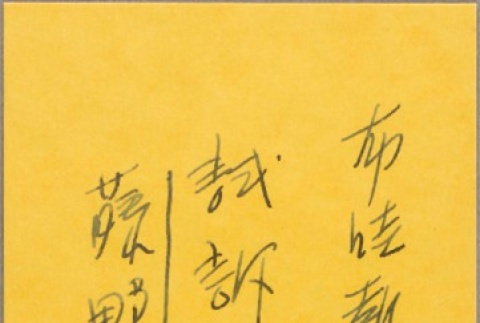 布哇報
試訴
藤野